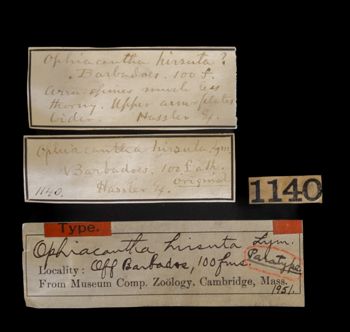 Ophiacantha hirsuta?
Barbados. 100 f.
Arm spines much less
thorny. Upper arm plates
wider. Hassler Ex.
Ophiacantha hirsuta Lym.
Barbados. 100 fath.
original
1140. Hassler Ex.
1140
Type.
Ophiacantha hirsuta Lym.
Locality: Off Barbados, 100 fms. Paratype
From Museum Comp. Zoölogy. Cambridge, Mass.
1951.